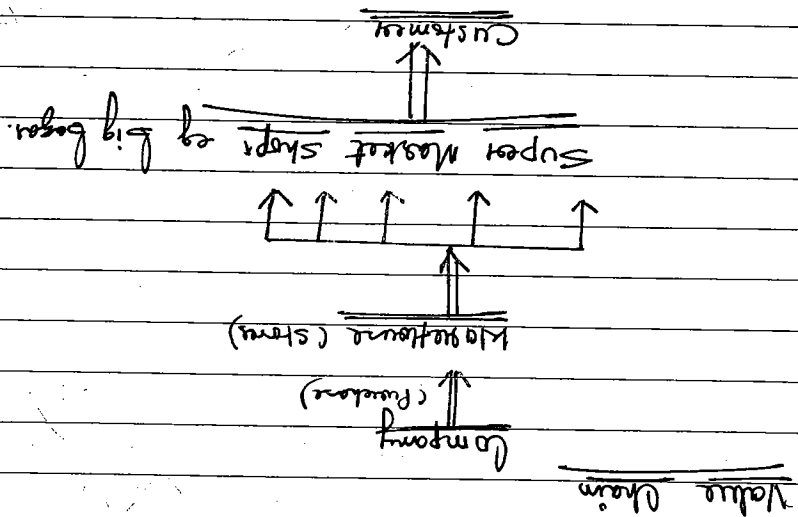 Value Chain
Company
(Purchase)
WareHouse (Stores)
Super Market Shops eg big bazar.
Customer